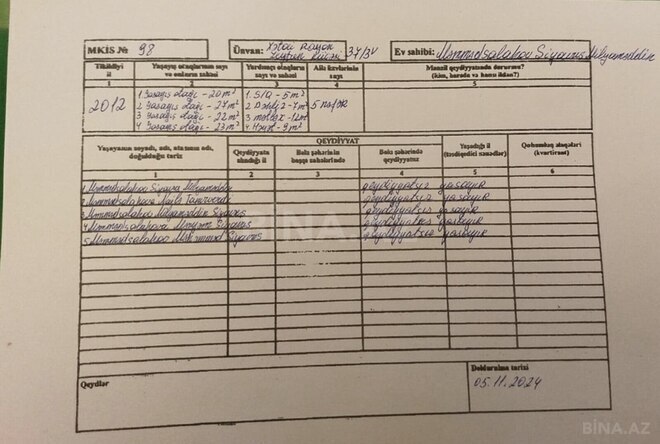 MKİS № 98
Ünvan: Xətai Rayon
küçəsi 37/34
Ev sahibi: Məmmədsalahov Siyavuş
Tikildiyi il
Yaşayış otaqlarının sayı və onların sahəsi
Yardımçı otaqların sayı və sahəsi
Ailə üzvlərinin sayı
Mənzil qeydiyyatında dururmu?
(kim, harada və hansı ildən?)
1 2 3 4 5
2012
1 Yaşayış otağı - 20 m²
2 Yaşayış otağı - 27 m²
3 Yaşayış otağı - 22 m²
4 Yaşayış otağı - 23 m²
1 S/Q - 5 m²
2 - 7 m²
3 mətbəx - 12 m²
4 - 9 m²
5 nəfər
QEYDİYYAT
Yaşayanın soyadı, adı, atasının adı, doğulduğu tarix
Qeydiyyata alındığı il
Bələ şəhərinin başqa sahələrində
Bələ şəhərində qeydiyyatsız
Yaşadığı il
(təsdiqedici sənədlər)
Qohumluq əlaqələri
(kvartirant)
1 2 3 4 5 6
1 Məmmədsalahov qeydiyyatsız yaşayır
2 Məmmədsalahova qeydiyyatsız yaşayır
3 Məmmədsalahov Siyavuş qeydiyyatsız yaşayır
4 Məmmədsalahova Siyavuş qeydiyyatsız yaşayır
5 Məmmədsalahov Məhəmməd Siyavuş qeydiyyatsız yaşayır
BINA.AZ
Qeydlər
Doldurulma tarixi
05.11.2024
BINA.AZ